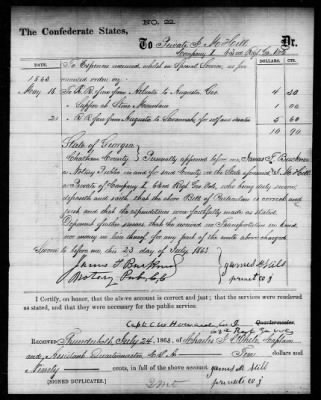 NO. 22.
The Confederate States,
To Private J. McNeill Dr.
Company I 63rd Regt Ga Vols
DATE. DOLLARS. CTS.
To Expenses incurred whilst on Special Service, as per
annexed order, viz.
1863
May 18 To R R fare from Atlanta to Augusta Geo 4 30
" Supper at Stone Mountain 1 00
21 " R R fare from Augusta to Savannah for self and 5 60
10 90
State of Georgia
Chatham County } Personally appeared before me, James F.
a Notary Public in and for said County in the State aforesaid
a Private of Company I 63rd Regt Geo Vols, who being duly sworn
deposeth and saith that the above Bill of Particulars is correct and
just and that the expenditures were faithfully made as stated
Deponent further swears that he received no Transportation in kind
nor money in lieu thereof for any part of the route above charged
Sworn to before me this 23 day of July 1863.
James F
Notary Pub, C. C.
James
privet co I
I Certify, on honor, that the above account is correct and just; that the services were rendered
as stated, and that they were necessary for the public service.
Capt
Quartermaster
63rd Regt Ga Vols
Received Thunderbolt July 24, 1863, of Charles Captain
and Assistant Quartermaster C.S.A. Ten dollars and
Ninety cents, in full of the above account.
[SIGNED DUPLICATES.]
James
privet co I